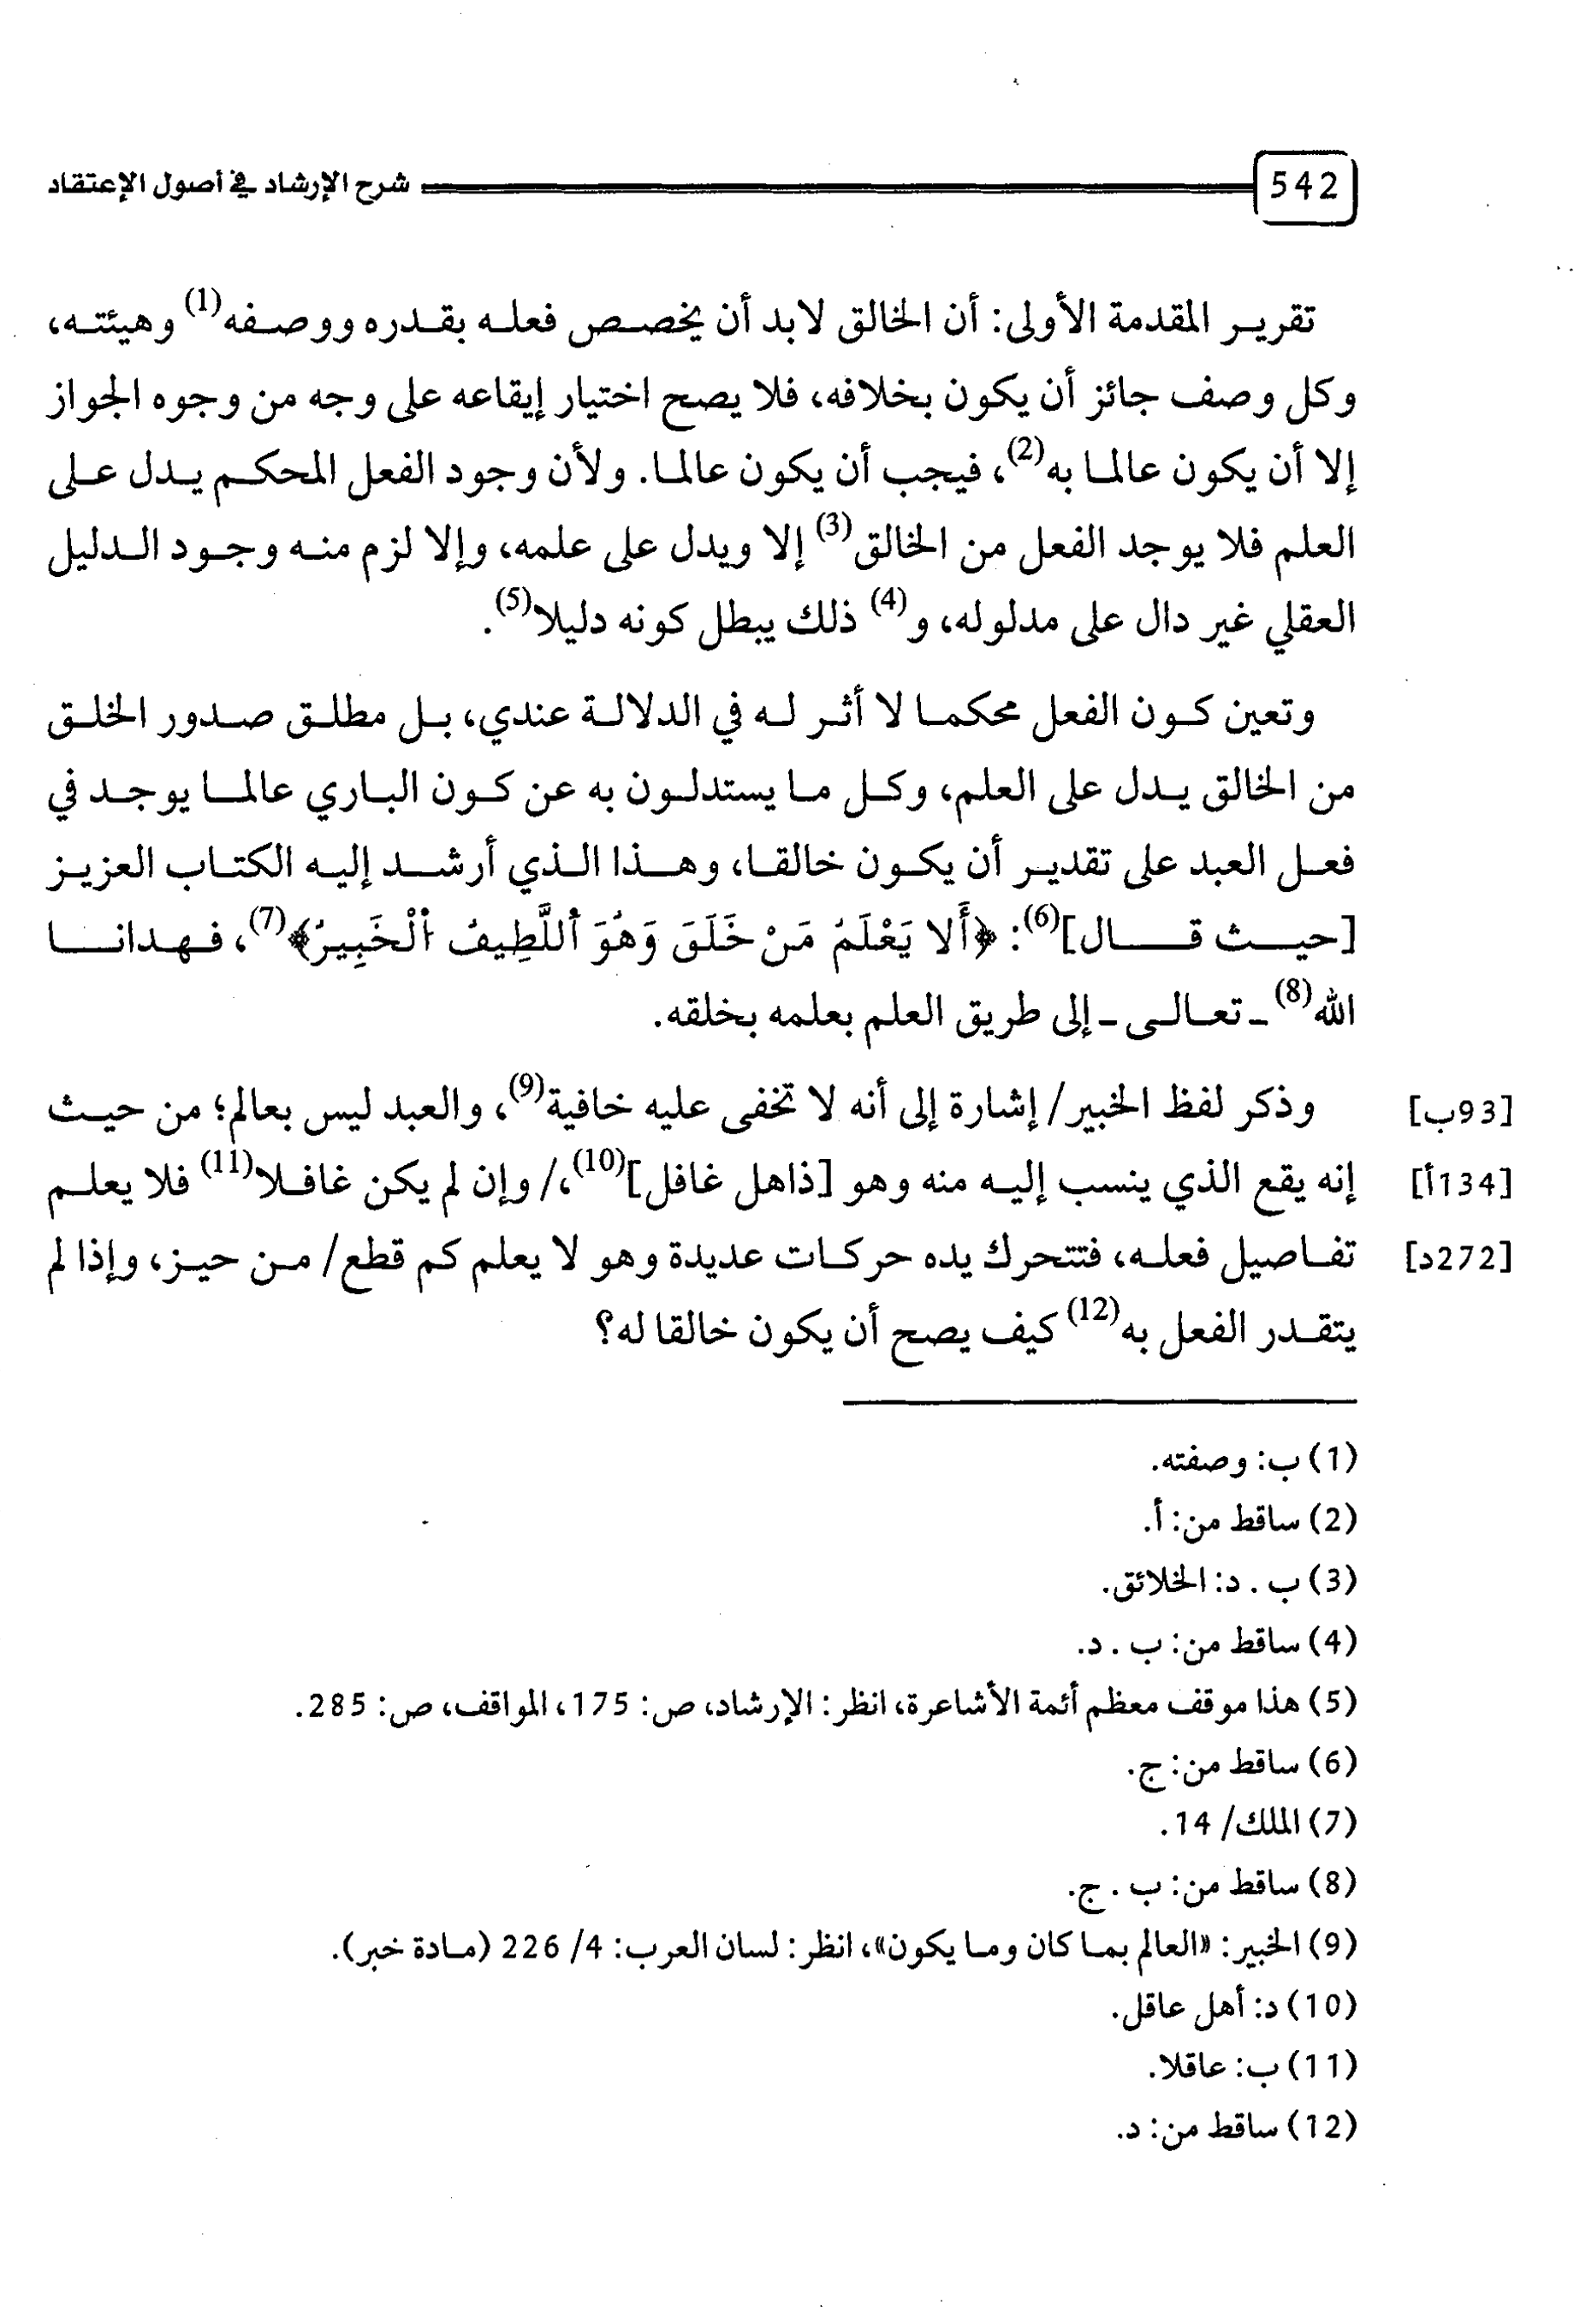 542 شرح الإرشاد في أصول الإعتقاد
تقرير المقدمة الأولى: أن الخالق لابد أن يخصص فعله بقدره ووصفه(1) وهيئته،
وكل وصف جائز أن يكون بخلافه، فلا يصح اختيار إيقاعه على وجه من وجوه الجواز
إلا أن يكون عالما به(2)، فيجب أن يكون عالما. ولأن وجود الفعل المحكم يدل على
العلم فلا يوجد الفعل من الخالق(3) إلا ويدل على علمه، وإلا لزم منه وجود الدليل
العقلي غير دال على مدلوله، و(4) ذلك يبطل كونه دليلا(5).
وتعين كون الفعل محكما لا أثر له في الدلالة عندي، بل مطلق صدور الخلق
من الخالق يدل على العلم، وكل ما يستدلون به عن كون الباري عالما يوجد في
فعل العبد على تقدير أن يكون خالقا، وهذا الذي أرشد إليه الكتاب العزيز
[حيث قال](6): ﴿أَلَا يَعْلَمُ مَنْ خَلَقَ وَهُوَ ٱللَّطِيفُ ٱلْخَبِيرُ﴾(7)، فهدانا
الله(8) ـ تعالى ـ إلى طريق العلم بعلمه بخلقه.
وذكر لفظ الخبير/ إشارة إلى أنه لا تخفى عليه خافية(9)، والعبد ليس بعالم؛ من حيث [93ب]
إنه يقع الذي ينسب إليه منه وهو [ذاهل غافل](10)،/ وإن لم يكن غافلا(11) فلا يعلم [134أ]
تفاصيل فعله، فتتحرك يده حركات عديدة وهو لا يعلم كم قطع/ من حيز، وإذا لم [272د]
يتقدر الفعل به(12) كيف يصح أن يكون خالقا له؟
(1) ب: وصفته.
(2) ساقط من: أ.
(3) ب . د: الخلائق.
(4) ساقط من: ب . د.
(5) هذا موقف معظم أئمة الأشاعرة، انظر: الإرشاد، ص: 175، المواقف، ص: 285.
(6) ساقط من: ج.
(7) الملك/ 14.
(8) ساقط من: ب . ج.
(9) الخبير: «العالم بما كان وما يكون»، انظر: لسان العرب: 4/ 226 (مادة خبر).
(10) د: أهل عاقل.
(11) ب: عاقلا.
(12) ساقط من: د.